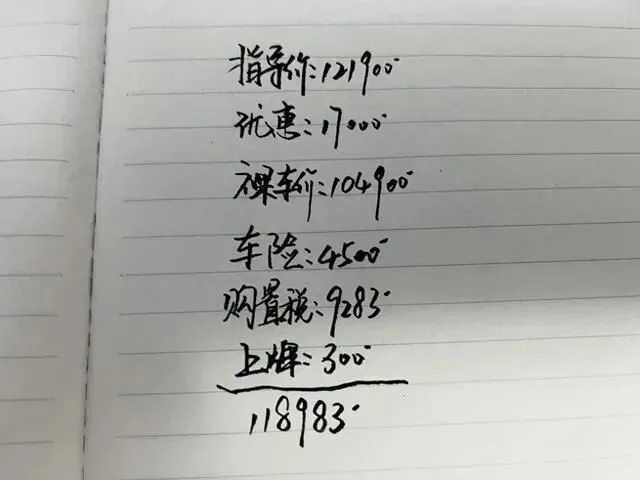 指导价:121900
优惠:17000
裸车价:104900
车险:4500
购置税:9283
上牌:300
118983